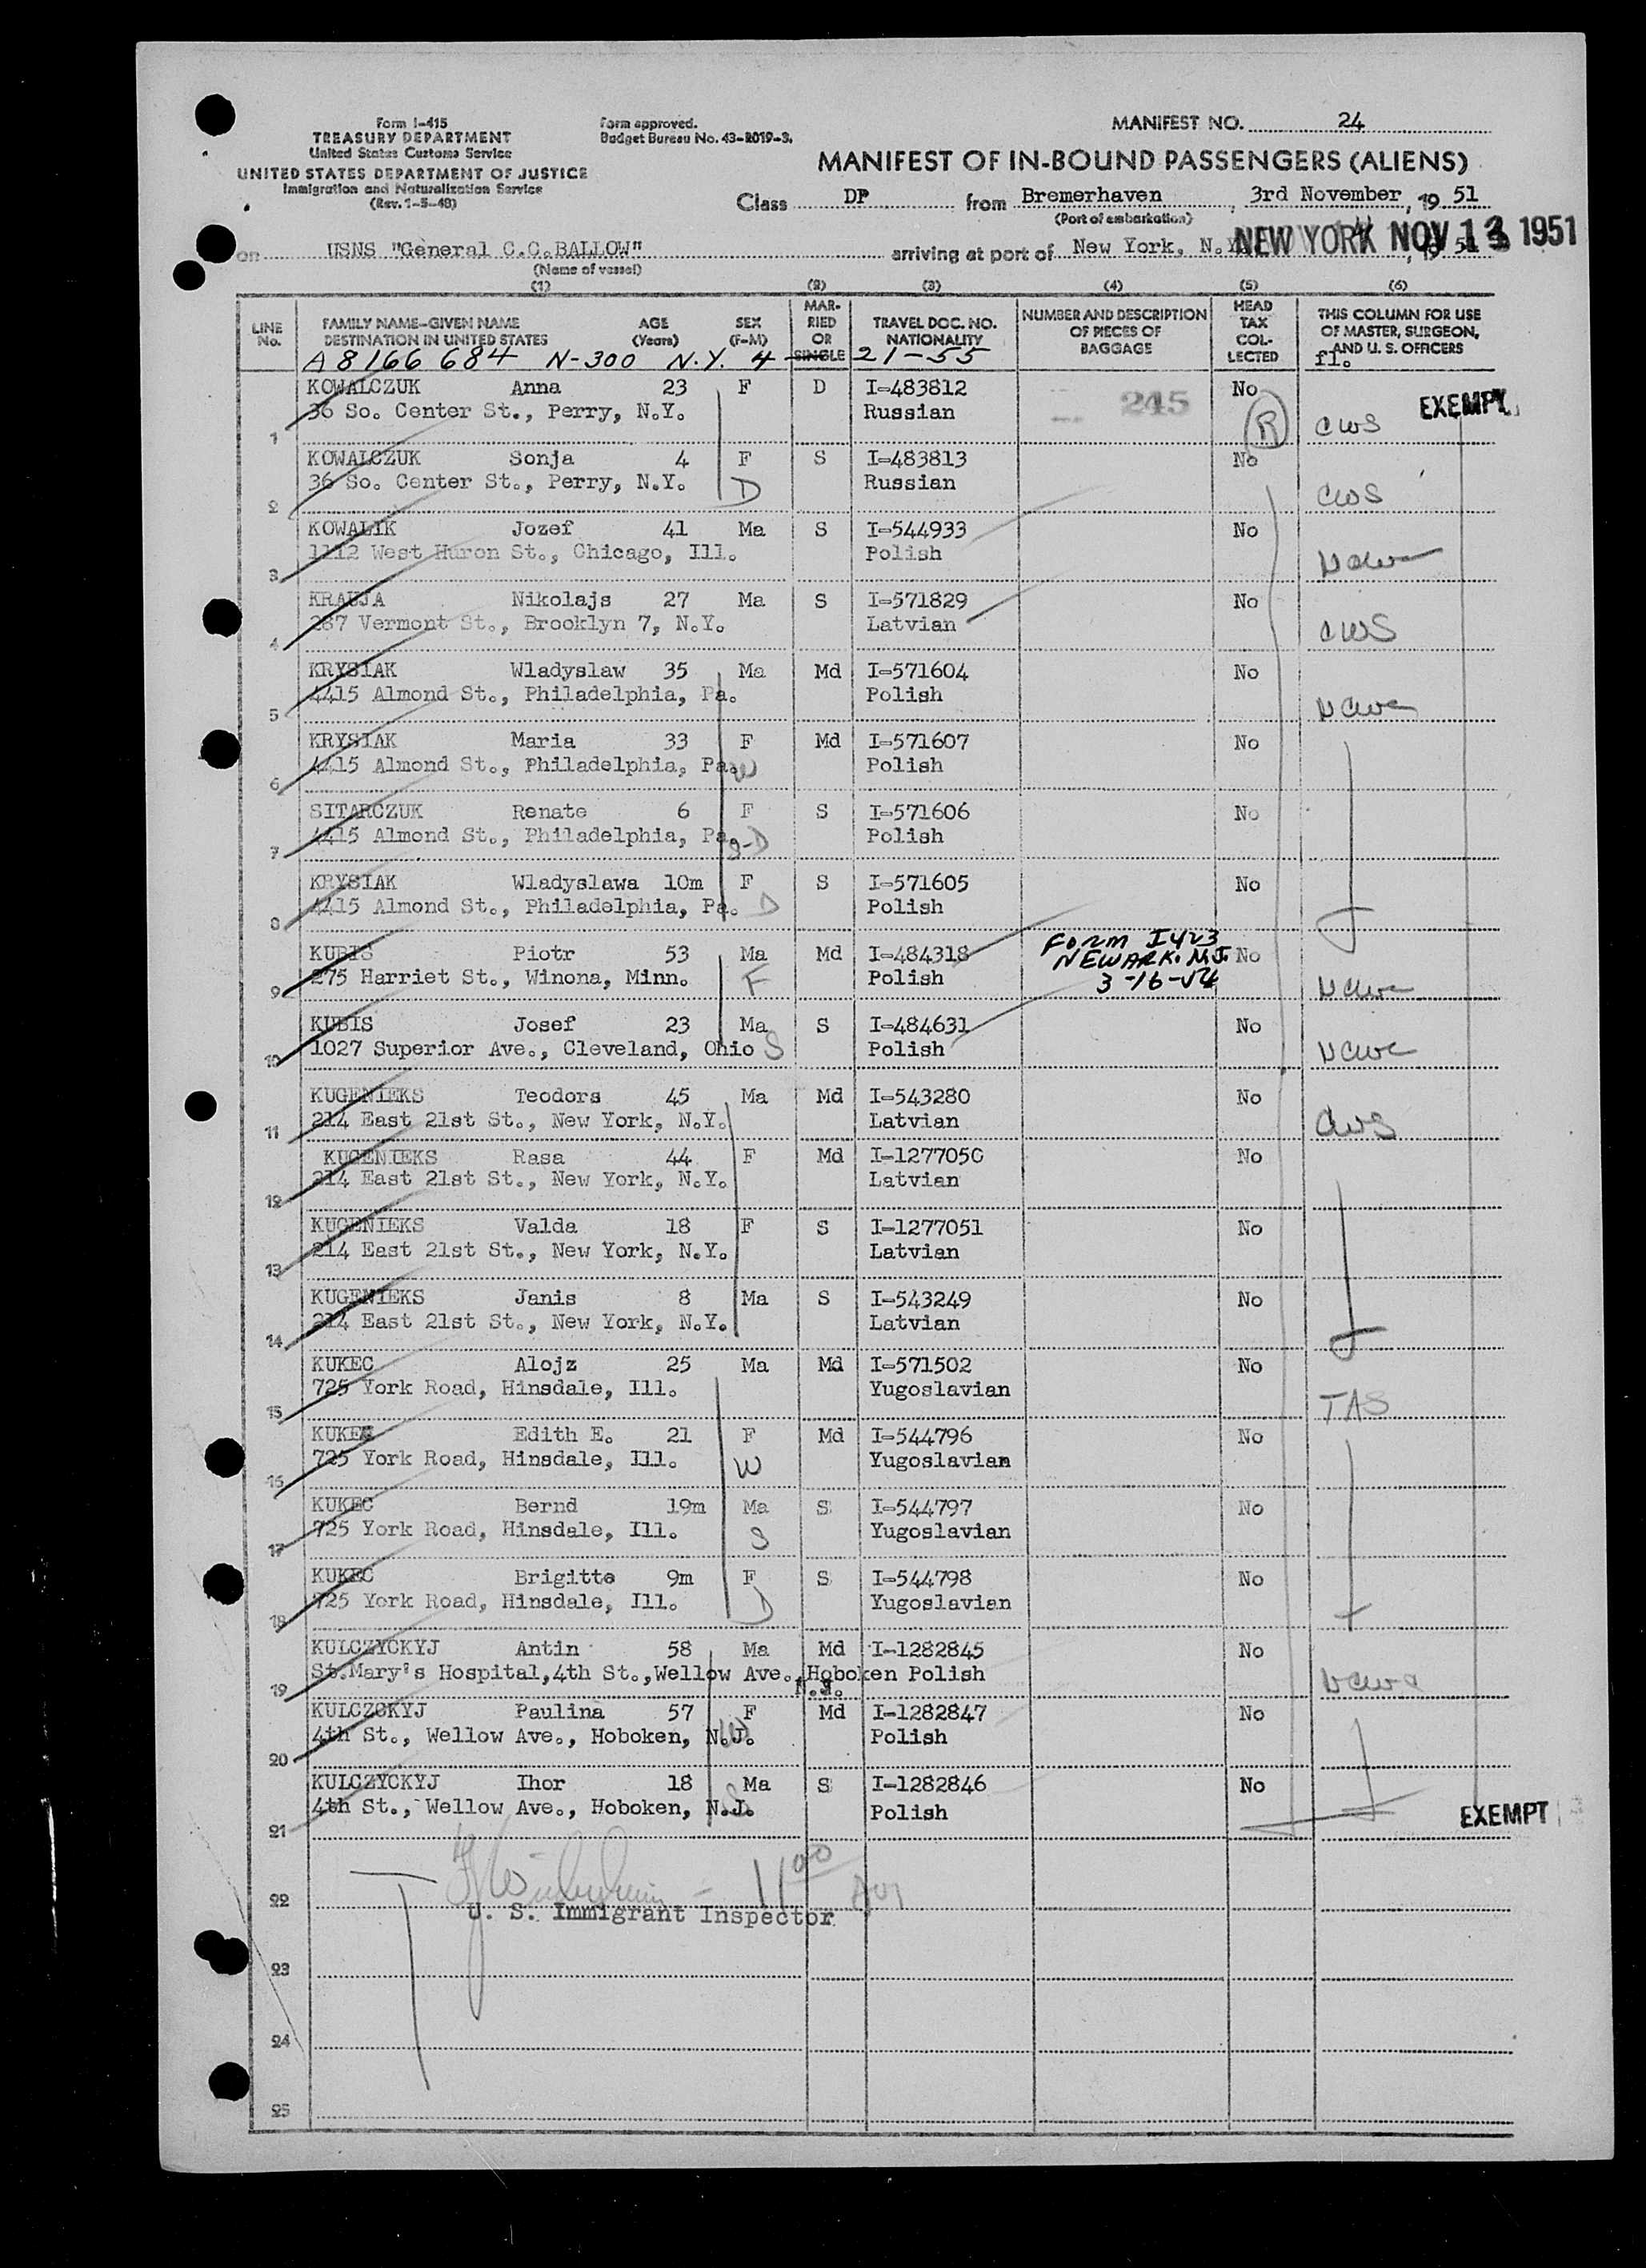 Form I-415
TREASURY DEPARTMENT
United States Customs Service
UNITED STATES DEPARTMENT OF JUSTICE
Immigration and Naturalization Service
(Rev. 1-5-48)
Form approved.
Budget Bureau No. 43-R019-3.
MANIFEST NO. 24
MANIFEST OF IN-BOUND PASSENGERS (ALIENS)
Class DP from Bremerhaven, 3rd November, 19 51
(Port of embarkation)
on USNS "General C.C.BALLOW" arriving at port of New York, N.Y.
NEW YORK NOV 13 1951
(Name of vessel)
(1) (2) (3) (4) (5) (6)
LINE No. FAMILY NAME-GIVEN NAME DESTINATION IN UNITED STATES AGE (Years) SEX (F-M) MARRIED OR SINGLE TRAVEL DOC. NO. NATIONALITY NUMBER AND DESCRIPTION OF PIECES OF BAGGAGE HEAD TAX COLLECTED THIS COLUMN FOR USE OF MASTER, SURGEON, AND U. S. OFFICERS
A8166 684 N-300 N.Y. 4-21-55 fl.
KOWALCZUK Anna 23 F D I-483812 245 No EXEMPT
1 36 So. Center St., Perry, N.Y. Russian R CWS
KOWALCZUK Sonja 4 F S I-483813 No
2 36 So. Center St., Perry, N.Y. D Russian CWS
KOWALIK Jozef 41 Ma S I-544933 No
3 1112 West Huron St., Chicago, Ill. Polish
KRAUJA Nikolajs 27 Ma S I-571829 No
4 287 Vermont St., Brooklyn 7, N.Y. Latvian CWS
KRYSIAK Wladyslaw 35 Ma Md I-571604 No
5 4415 Almond St., Philadelphia, Pa. Polish
KRYSIAK Maria 33 F Md I-571607 No
6 4415 Almond St., Philadelphia, Pa. W Polish
SITARCZUK Renate 6 F S I-571606 No
7 4415 Almond St., Philadelphia, Pa. S-D Polish
KRYSIAK Wladyslawa 10m F S I-571605 No
8 4415 Almond St., Philadelphia, Pa. D Polish
KUBIS Piotr 53 Ma Md I-484318 Form I423 NEWARK. N.J. 3-16-54 No
9 275 Harriet St., Winona, Minn. F Polish
KUBIS Josef 23 Ma S I-484631 No
10 1027 Superior Ave., Cleveland, Ohio S Polish
KUGENIEKS Teodors 45 Ma Md I-543280 No
11 214 East 21st St., New York, N.Y. Latvian CWS
KUGENIEKS Rasa 44 F Md I-1277050 No
12 214 East 21st St., New York, N.Y. Latvian
KUGENIEKS Valda 18 F S I-1277051 No
13 214 East 21st St., New York, N.Y. Latvian
KUGENIEKS Janis 8 Ma S I-543249 No
14 214 East 21st St., New York, N.Y. Latvian
KUKEC Alojz 25 Ma Md I-571502 No
15 725 York Road, Hinsdale, Ill. Yugoslavian TAS
KUKEC Edith E. 21 F Md I-544796 No
16 725 York Road, Hinsdale, Ill. W Yugoslavian
KUKEC Bernd 19m Ma S I-544797 No
17 725 York Road, Hinsdale, Ill. S Yugoslavian
KUKEC Brigitte 9m F S I-544798 No
18 725 York Road, Hinsdale, Ill. D Yugoslavian
KULCZYCKYJ Antin 58 Ma Md I-1282845 No
19 St.Mary's Hospital,4th St.,Wellow Ave.,Hoboken N.J. Polish
KULCZCKYJ Paulina 57 F Md I-1282847 No
20 4th St., Wellow Ave., Hoboken, N.J. W Polish
KULCZYCKYJ Ihor 18 Ma S I-1282846 No
21 4th St., Wellow Ave., Hoboken, N.J. S Polish EXEMPT
22
U. S. Immigrant Inspector
23
24
25